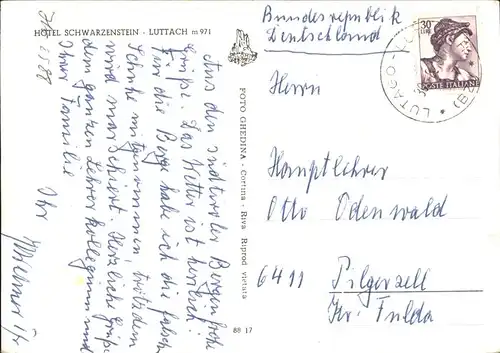 HOTEL SCHWARZENSTEIN - LUTTACH m 971
Aus den Südtiroler Bergen frohe
Grüße. Das Wetter ist herrlich!
Für die Berge habe ich die falschen
Schuhe mitgenommen, trotzdem
wird marschiert. Herzliche Grüße
dem ganzen Lehrerkollegium und
Ihrer Familie
Ihr
FOTO GHEDINA - Cortina - Riva - Riprod. vietata
88 17
Bundesrepublik
Deutschland
30
LIRE
POSTE ITALIANE
LUTAGO
(BZ)
Herrn
Hauptlehrer
Otto Odenwald
6411 Pilgerzell
Kr. Fulda